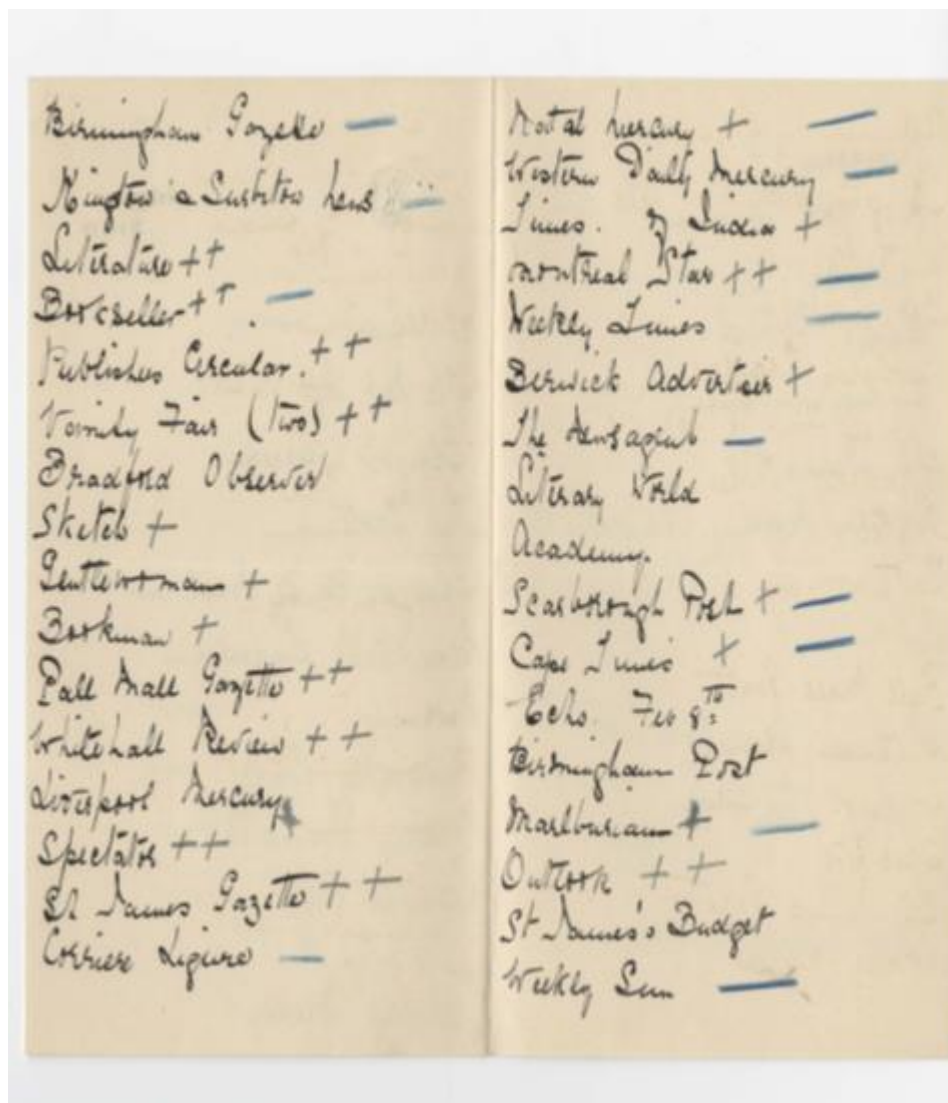 Birmingham Gazette —
Kingston & Surbiton News —
Literature ++
Bookseller ++ —
Publishers Circular. ++
Vanity Fair (two) ++
Bradford Observer
Sketch +
Gentlewoman +
Bookman +
Pall Mall Gazette ++
Whitehall Review ++
Liverpool Mercury +
Spectator ++
St James Gazette ++
Corriere Ligure —
Natal Mercury + —
Western Daily Mercury —
Times. of India +
Montreal Star ++ —
Weekly Times —
Berwick Advertiser +
The Newsagent —
Literary World
Academy.
Scarborough Post + —
Cape Times + —
Echo. Feb 8th
Birmingham Post
Marlburian + —
Outlook ++
St James's Budget
Weekly Sun —